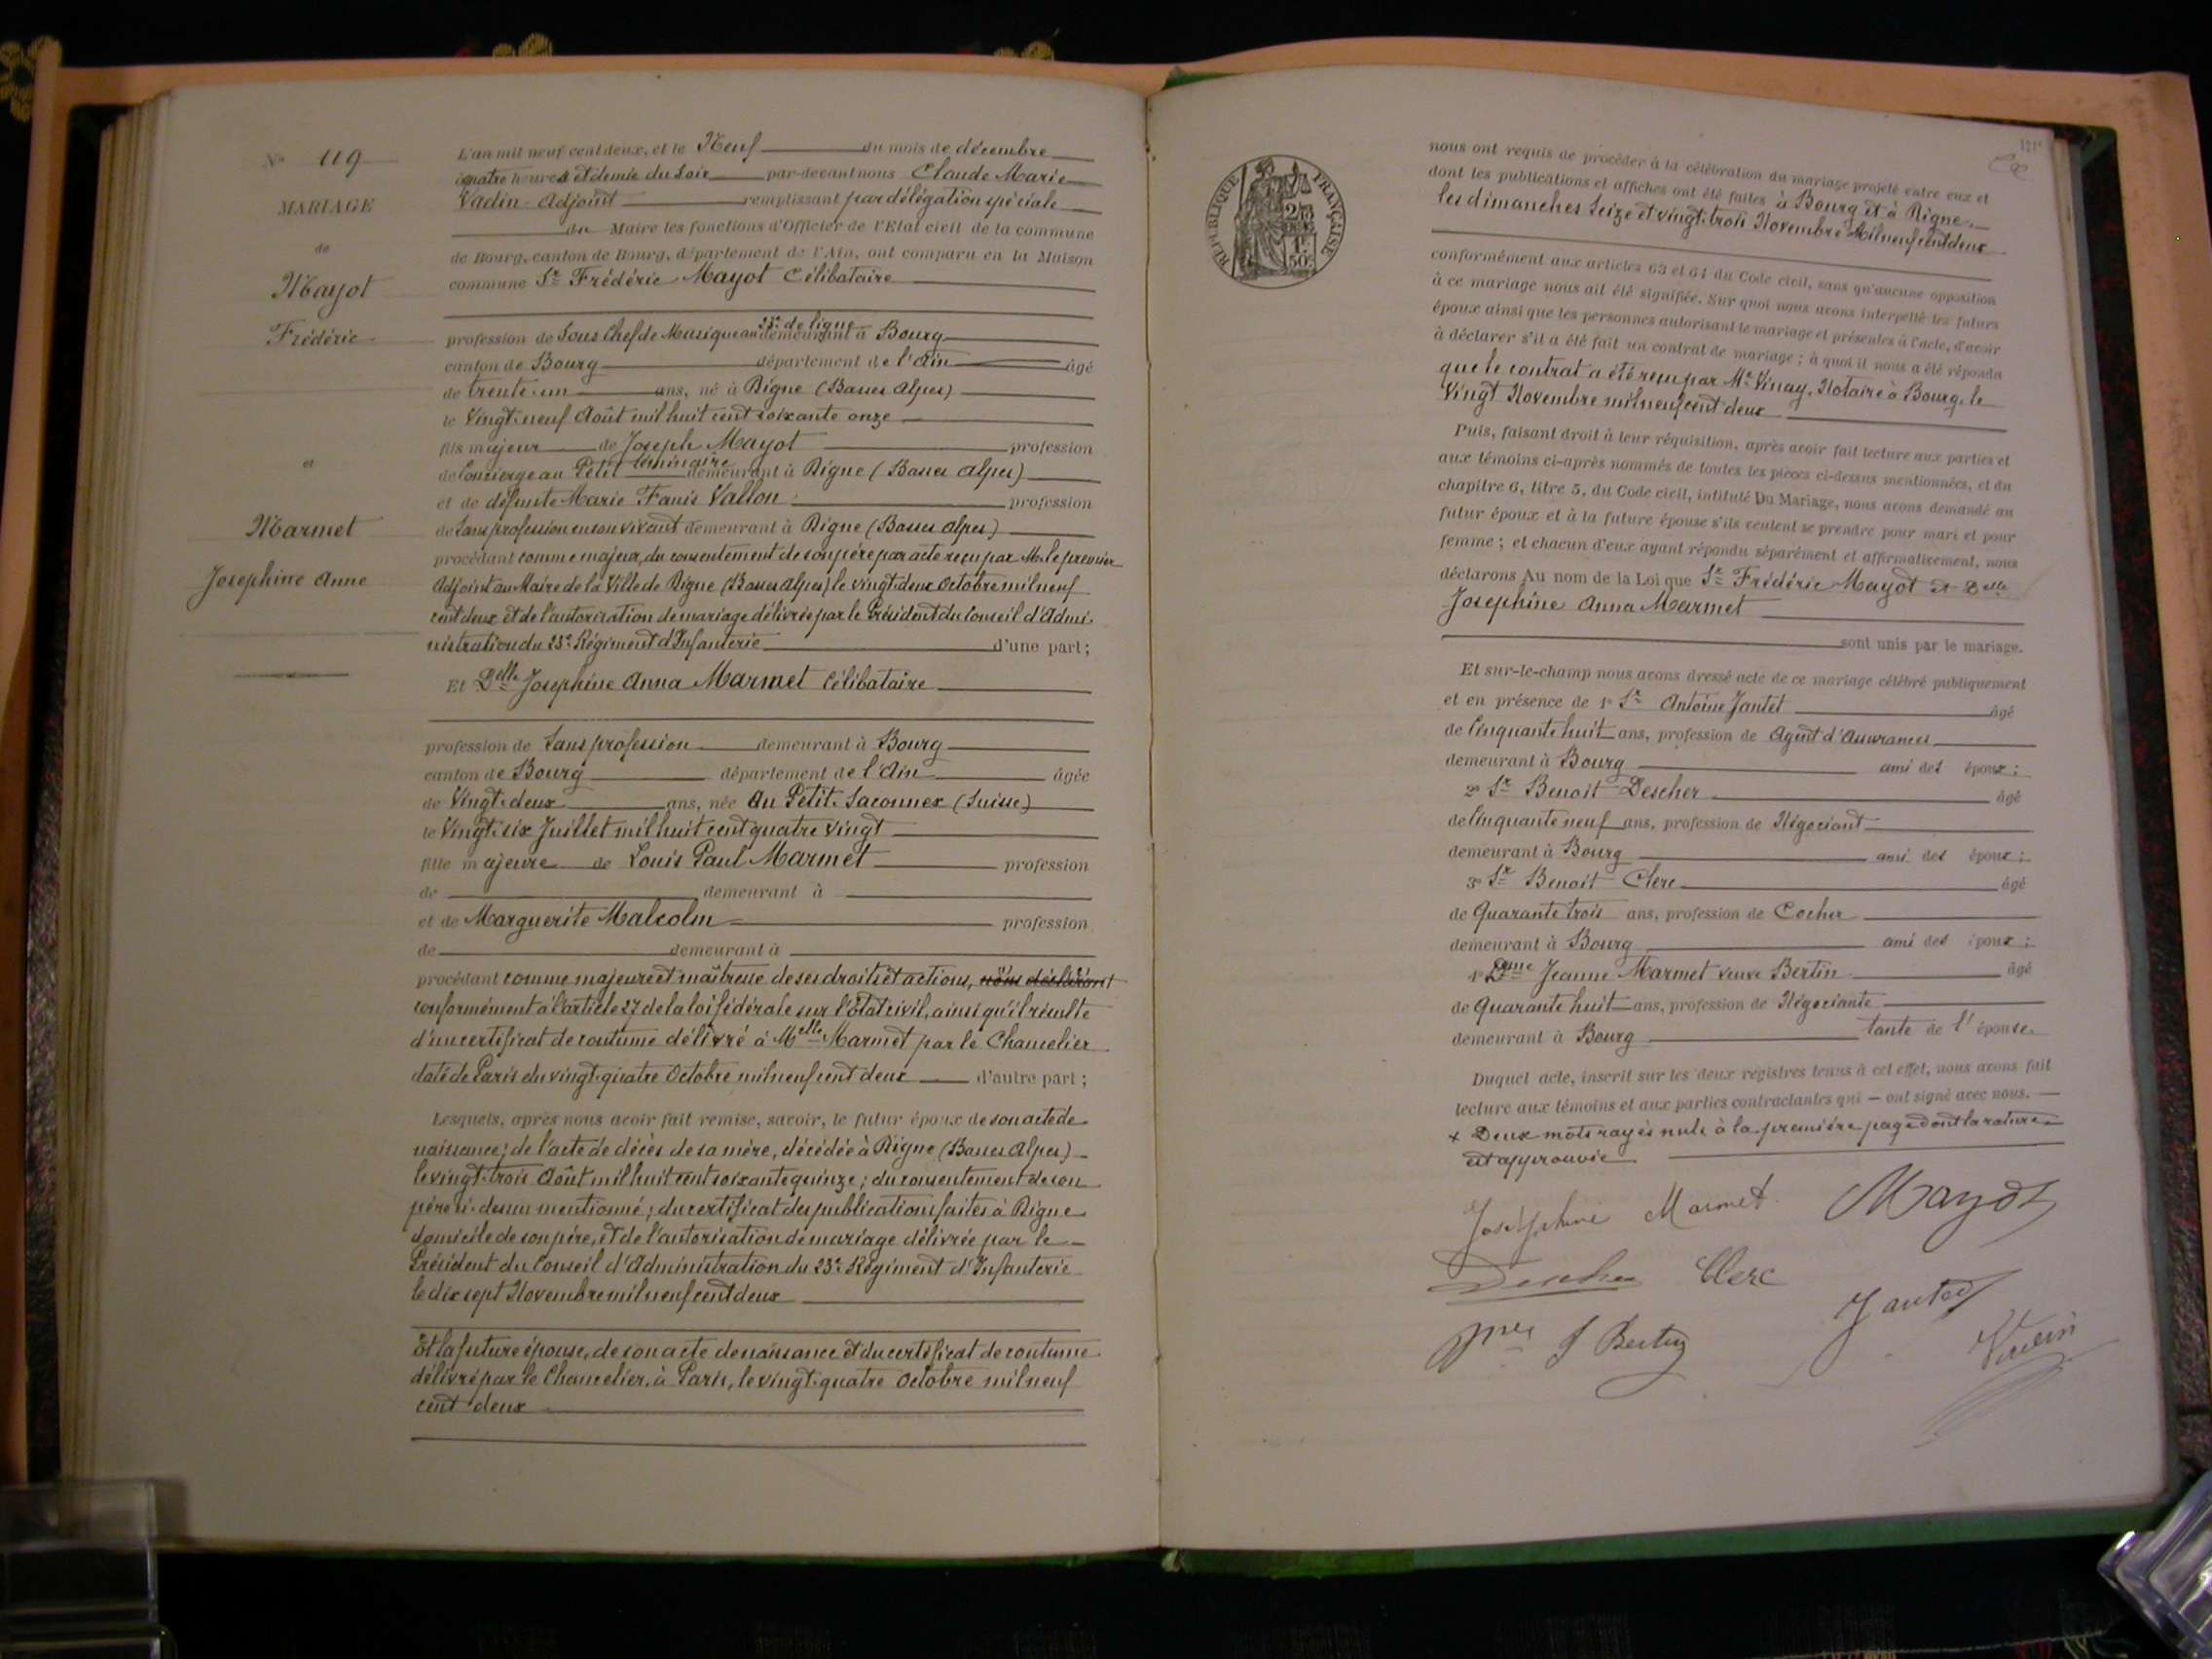 N° 119
MARIAGE
de
Mayot
Frédéric
et
Marmet
Josephine Anne
L'an mil neuf cent deux, et le Neuf du mois de décembre
à quatre heures et demie du soir par-devant nous Claude Marie
Vadin Adjoint remplissant par délégation spéciale
du Maire les fonctions d'Officier de l'Etat civil de la commune
de Bourg, canton de Bourg, département de l'Ain, ont comparu en la Maison
commune Sr Frédéric Mayot Célibataire
profession de Sous Chef de Musique au 23e de ligne demeurant à Bourg
canton de Bourg département de l'Ain âgé
de trente-un ans, né à Digne (Basses Alpes)
le Vingt-neuf Août mil huit cent soixante onze
fils majeur de Joseph Mayot profession
de Concierge au Petit séminaire demeurant à Digne (Basses Alpes)
et de défunte Marie Fanie Vallon profession
de Sans profession en son vivant demeurant à Digne (Basses Alpes)
procédant comme majeur, du consentement de son père par acte reçu par Mr le premier
Adjoint au Maire de la Ville de Digne (Basses Alpes) le vingt-deux Octobre mil neuf
cent deux et de l'autorisation de mariage délivrée par le Président du Conseil d'Admi-
nistration du 23e Régiment d'Infanterie d'une part;
Et Delle Josephine Anna Marmet Célibataire
profession de Sans profession demeurant à Bourg
canton de Bourg département de l'Ain âgée
de Vingt-deux ans, née Au Petit-Saconnex (Suisse)
le Vingt-six Juillet mil huit cent quatre vingt
fille majeure de Louis Paul Marmet profession
de demeurant à
et de Marguerite Malcolm profession
de demeurant à
procédant comme majeure et maîtresse de ses droits et actions, nous déclarant
conformément à l'article 27 de la loi fédérale sur l'Etat civil, ainsi qu'il résulte
d'un certificat de coutume délivré à Melle Marmet par le Chancelier
daté de Paris du vingt-quatre Octobre mil neuf cent deux d'autre part;
Lesquels, après nous avoir fait remise, savoir, le futur époux de son acte de
naissance; de l'acte de décès de sa mère, décédée à Digne (Basses Alpes)
le vingt-trois Août mil huit cent soixante quinze; du consentement de son
père ci-dessus mentionné; du certificat des publications faites à Digne
domicile de son père, et de l'autorisation de mariage délivrée par le
Président du Conseil d'Administration du 23e Régiment d'Infanterie
le dix sept Novembre mil neuf cent deux
Et la future épouse, de son acte de naissance et du certificat de coutume
délivré par le Chancelier, à Paris, le vingt-quatre Octobre mil neuf
cent deux
RÉPUBLIQUE FRANÇAISE
nous ont requis de procéder à la célébration du mariage projeté entre eux et
dont les publications et affiches ont été faites à Bourg et à Digne
les dimanches Seize et vingt-trois Novembre Mil neuf cent deux
conformément aux articles 63 et 64 du Code civil, sans qu'aucune opposition
à ce mariage nous ait été signifiée. Sur quoi nous avons interpellé les futurs
époux ainsi que les personnes autorisant le mariage et présentes à l'acte, d'avoir
à déclarer s'il a été fait un contrat de mariage; à quoi il nous a été répondu
que le contrat a été reçu par Me Vinay, Notaire à Bourg, le
Vingt Novembre mil neuf cent deux
Puis, faisant droit à leur réquisition, après avoir fait lecture aux parties et
aux témoins ci-après nommés de toutes les pièces ci-dessus mentionnées, et du
chapitre 6, titre 5, du Code civil, intitulé Du Mariage, nous avons demandé au
futur époux et à la future épouse s'ils veulent se prendre pour mari et pour
femme; et chacun d'eux ayant répondu séparément et affirmativement, nous
déclarons Au nom de la Loi que Sr Frédéric Mayot et Delle
Josephine Anna Marmet
sont unis par le mariage.
Et sur-le-champ nous avons dressé acte de ce mariage célébré publiquement
et en présence de 1° Sr Antoine Jantet âgé
de Cinquante huit ans, profession de Agent d'Assurances
demeurant à Bourg ami des époux;
2° Sr Benoit Descher âgé
de Cinquante neuf ans, profession de Négociant
demeurant à Bourg ami des époux;
3° Sr Benoit Clerc âgé
de Quarante trois ans, profession de Cocher
demeurant à Bourg ami des époux;
4° Dame Jeanne Marmet veuve Bertin âgé
de Quarante huit ans, profession de Négociante
demeurant à Bourg tante de l'épouse.
Duquel acte, inscrit sur les deux registres tenus à cet effet, nous avons fait
lecture aux témoins et aux parties contractantes qui — ont signé avec nous. —
x Deux mots rayés nuls à la première page dont la rature
est approuvée
Joséphine Marmet Mayot
Descher Clerc
Jantet
J Bertin
Vadin